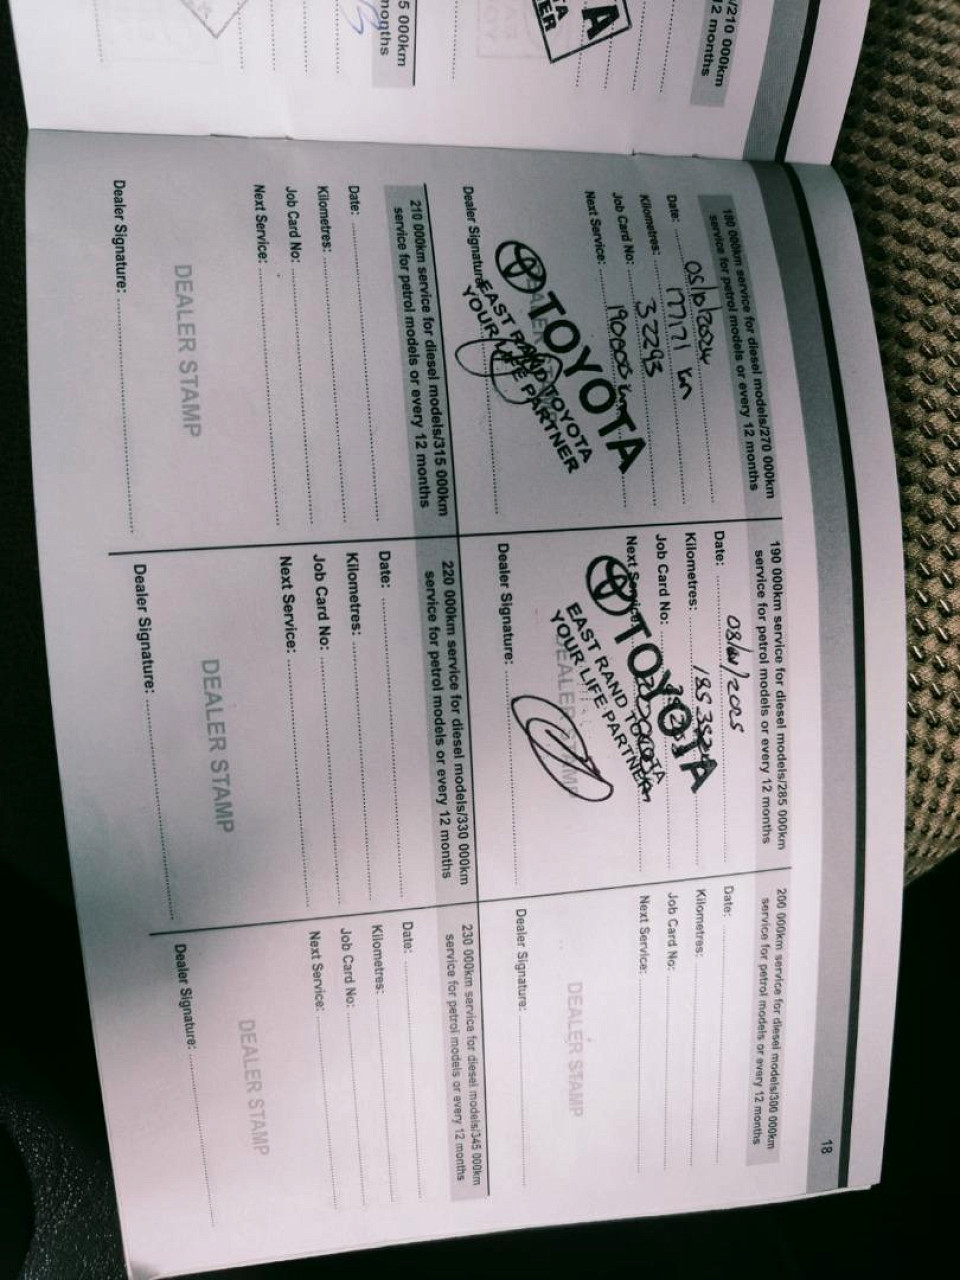 /210 000km
12 months
5 000km
months
18
180 000km service for diesel models/270 000km
service for petrol models or every 12 months
Date: 05/10/2024
Kilometres: 177171 km
Job Card No: 32293
Next Service: 190000 km
TOYOTA
EAST RAND TOYOTA
YOUR LIFE PARTNER
Dealer Signature:
190 000km service for diesel models/285 000km
service for petrol models or every 12 months
Date: 08/ /2025
Kilometres:
Job Card No:
Next Service:
TOYOTA
EAST RAND TOYOTA
YOUR LIFE PARTNER
Dealer Signature:
200 000km service for diesel models/300 000km
service for petrol models or every 12 months
Date:
Kilometres:
Job Card No:
Next Service:
DEALER STAMP
Dealer Signature:
210 000km service for diesel models/315 000km
service for petrol models or every 12 months
Date:
Kilometres:
Job Card No:
Next Service:
DEALER STAMP
Dealer Signature:
220 000km service for diesel models/330 000km
service for petrol models or every 12 months
Date:
Kilometres:
Job Card No:
Next Service:
DEALER STAMP
Dealer Signature:
230 000km service for diesel models/345 000km
service for petrol models or every 12 months
Date:
Kilometres:
Job Card No:
Next Service:
DEALER STAMP
Dealer Signature: